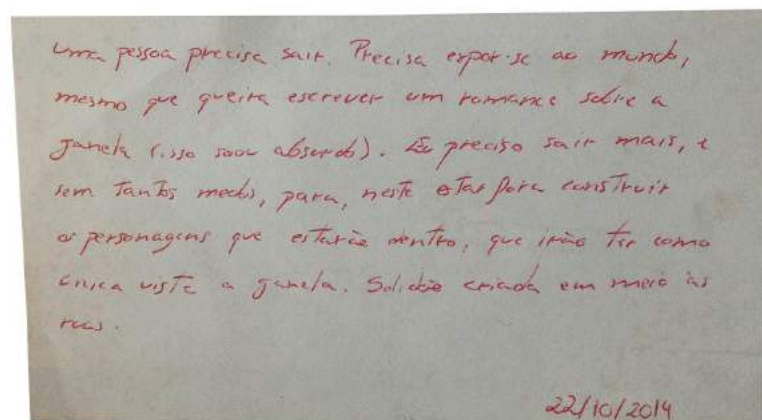 uma pessoa precisa sair. Precisa expor-se ao mundo,
mesmo que queira escrever um romance sobre a
janela (isso soou absurdo). Eu preciso sair mais, e
sem tantos medos, para, neste estar fora construir
os personagens que estarão dentro, que irão ter como
única vista a janela. Solidão criada em meio às
ruas.
22/10/2014